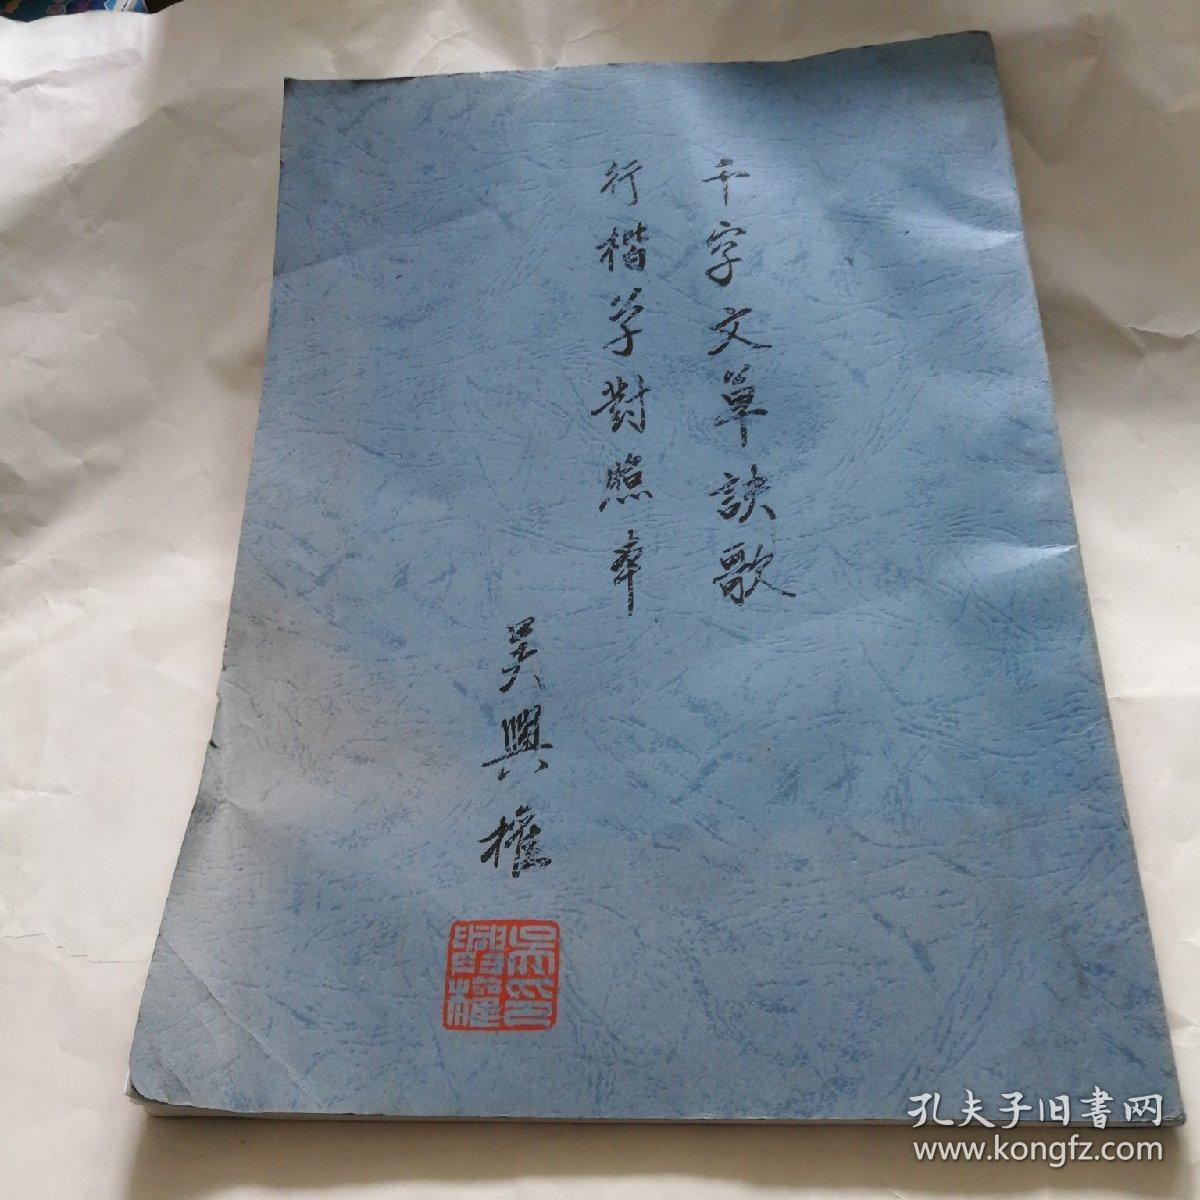 千字文草訣歌
行楷草對照本
吴興權
吴印
興權
孔夫子旧書网
www.kongfz.com